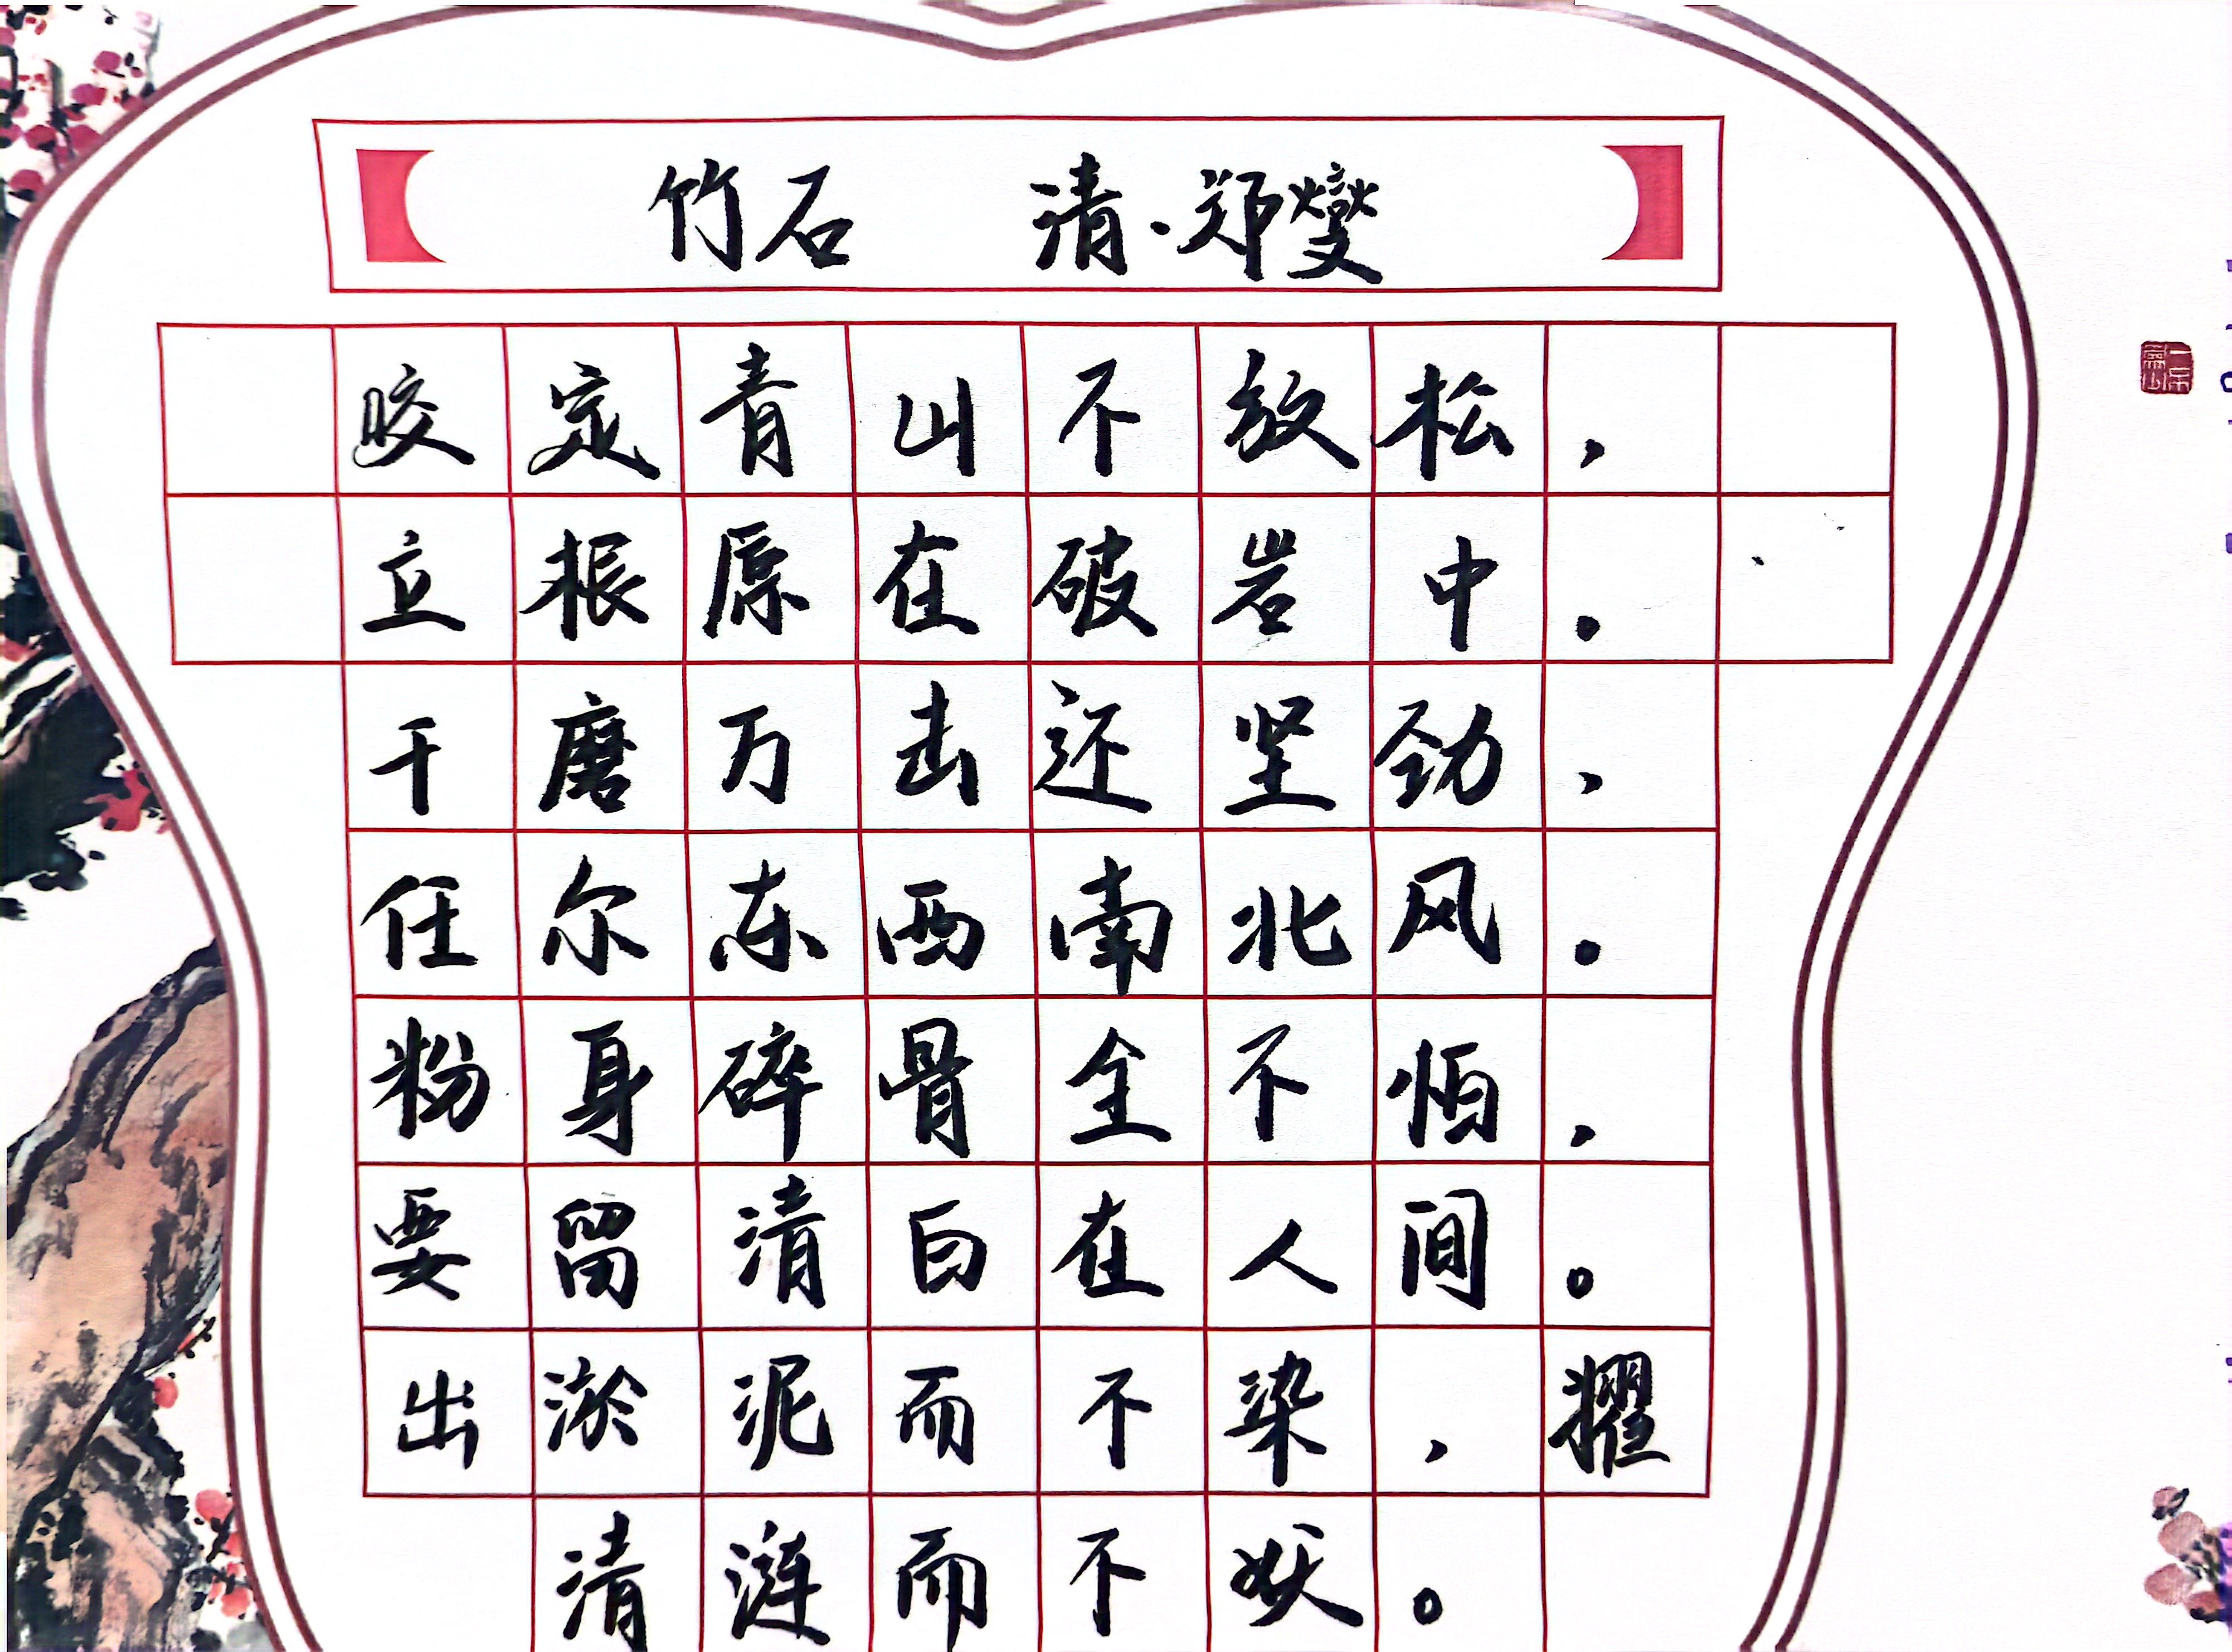 竹石 清·郑燮
咬定青山不放松，
立根原在破岩中。
千磨万击还坚劲，
任尔东西南北风。
粉身碎骨全不怕，
要留清白在人间。
出淤泥而不染，擢
清涟而不妖。